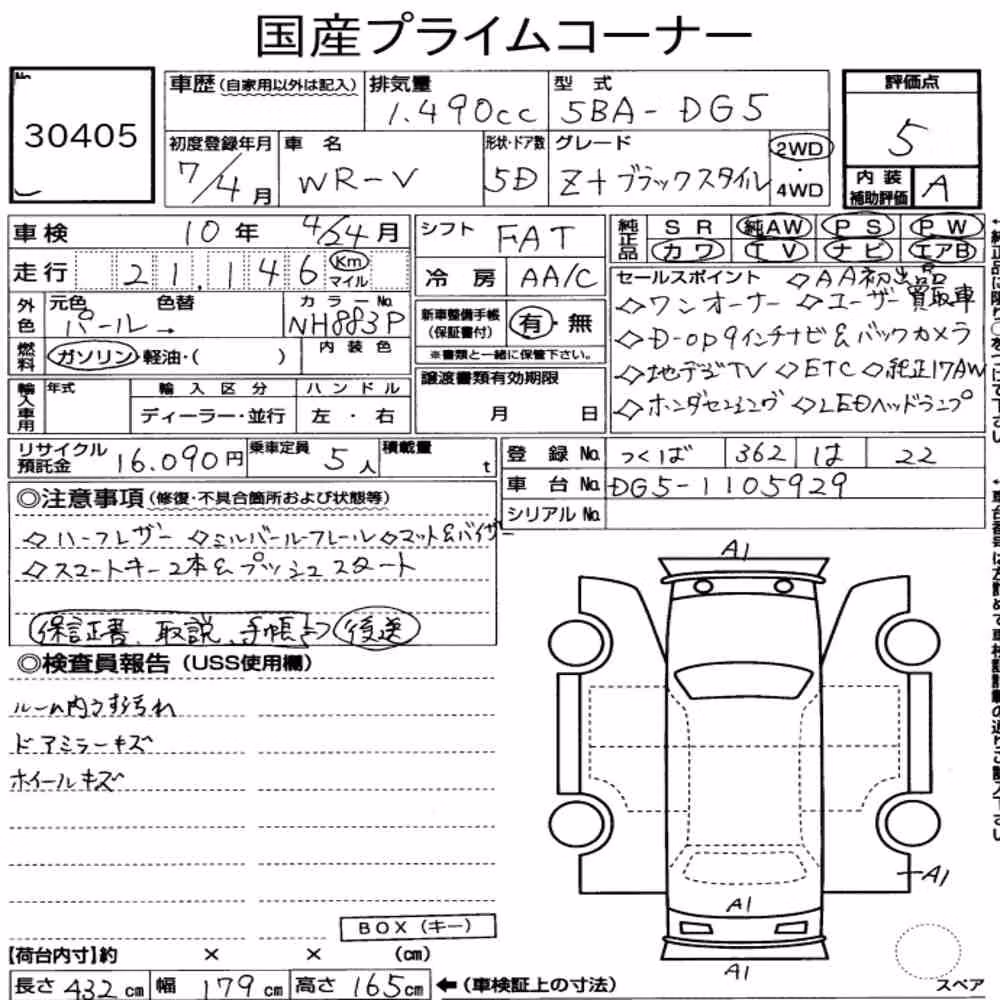 国産プライムコーナー
No.
30405
車歴(自家用以外は記入)
排気量
1.490cc
型式
5BA-DG5
評価点
5
初度登録年月
7/4月
車名
WR-V
形状・ドア数
5D
グレード
Z+ブラックスタイル
2WD
・
4WD
内装
補助評価
A
車検 10年 4/24月
シフト
FAT
純正品
SR 純AW PS PW
カワ TV ナビ エアB
走行 21,146 Km
マイル
冷房 AA/C
セールスポイント ◇AA初出品
◇ワンオーナー ◇ユーザー買取車
◇D-op9インチナビ&バックカメラ
◇地デジTV ◇ETC ◇純正17AW
◇ホンダセンシング ◇LEDヘッドランプ
外色
元色 色替
パール→
カラーNo.
NH883P
新車整備手帳
(保証書付)
有・無
※書類と一緒に保管下さい。
燃料
ガソリン・軽油・( )
内装色
輸入車用
年式
輸入区分
ディーラー・並行
ハンドル
左・右
譲渡書類有効期限
月 日
リサイクル
預託金
16.090円
乗車定員
5人
積載量
t
登録No. つくば 362 は 22
車台No. DG5-1105929
シリアルNo.
◎注意事項(修復・不具合箇所および状態等)
◇ハーフレザー ◇シルバールーフレール◇マット&バイザー
◇スマートキー2本&プッシュスタート
保証書、取説、手帳⇒後送
◎検査員報告(USS使用欄)
ルーム内うす汚れ
ドアミラーキズ
ホイールキズ
A1
A1
A1
A1
BOX(キー)
【荷台内寸】約 × × (cm)
長さ432cm 幅179cm 高さ165cm ←(車検証上の寸法)
スペア